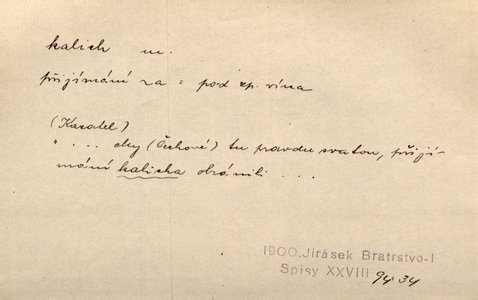 kalich m.
přijímání za = pod zp. vína
(Kazatel)
" ... aby (Čechové) tu pravdu svatou, přijí-
mání kalicha obránili ...
1900. Jirásek Bratrstvo-I
Spisy XXVIII 94 34